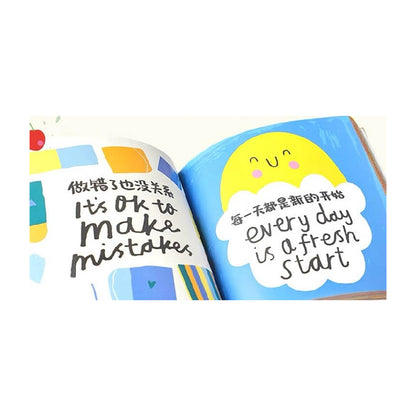 做错了也没关系
It's ok to
make
mistakes
每一天都是新的开始
every day
is a fresh
start